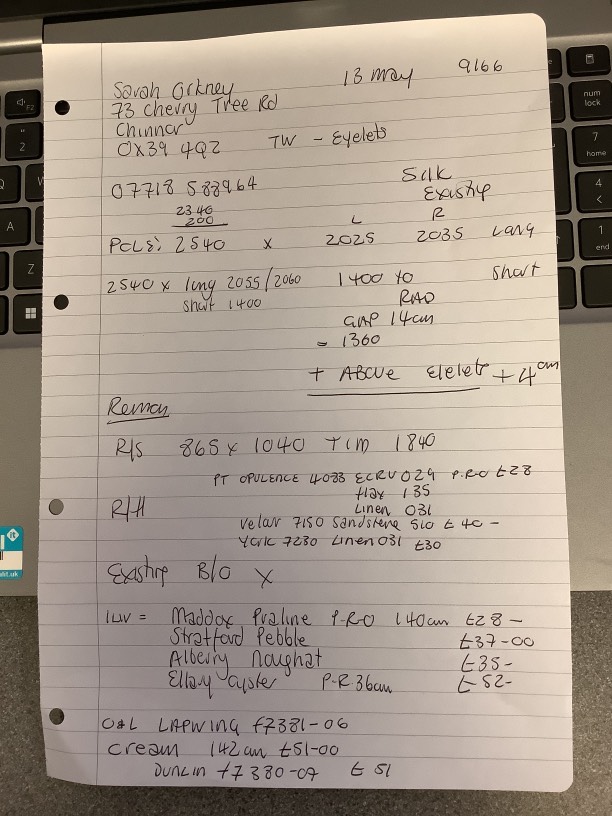 13 may 9166
Sarah Orkney
73 cherry Tree Rd
Chinnor
OX39 4QZ TW - Eyelets
07718 588964
Silk
Exasitng
2340
200
L R
POLE: 2540 x 2025 2035 Lang
2540 x long 2055/2060 1400 to short
short 1400 RAD
GAP 14cm
- 1360
+ ABOVE Elelets + 4cm
Roman
R/S 865 x 1040 TIM 1840
PT OPULENCE 4033 ECRU 029 P.RO £28
flax 135
R/H Linen 031
Velour 7150 Sandstone 510 £40-
York 7230 Linen 031 £30
Exasitng B/O X
ILIV = Maddox Praline P-R-O 140cm £28-
Stratford Pebble £37-00
Alberry Noughat £35-
Ellary Oyster P-R 36cm £52-
O&L LAPWING f7381-06
Cream 142cm £51-00
DUNLIN f7380-07 £51
num
lock
7
home
4
1
end
2
A
Z
F2